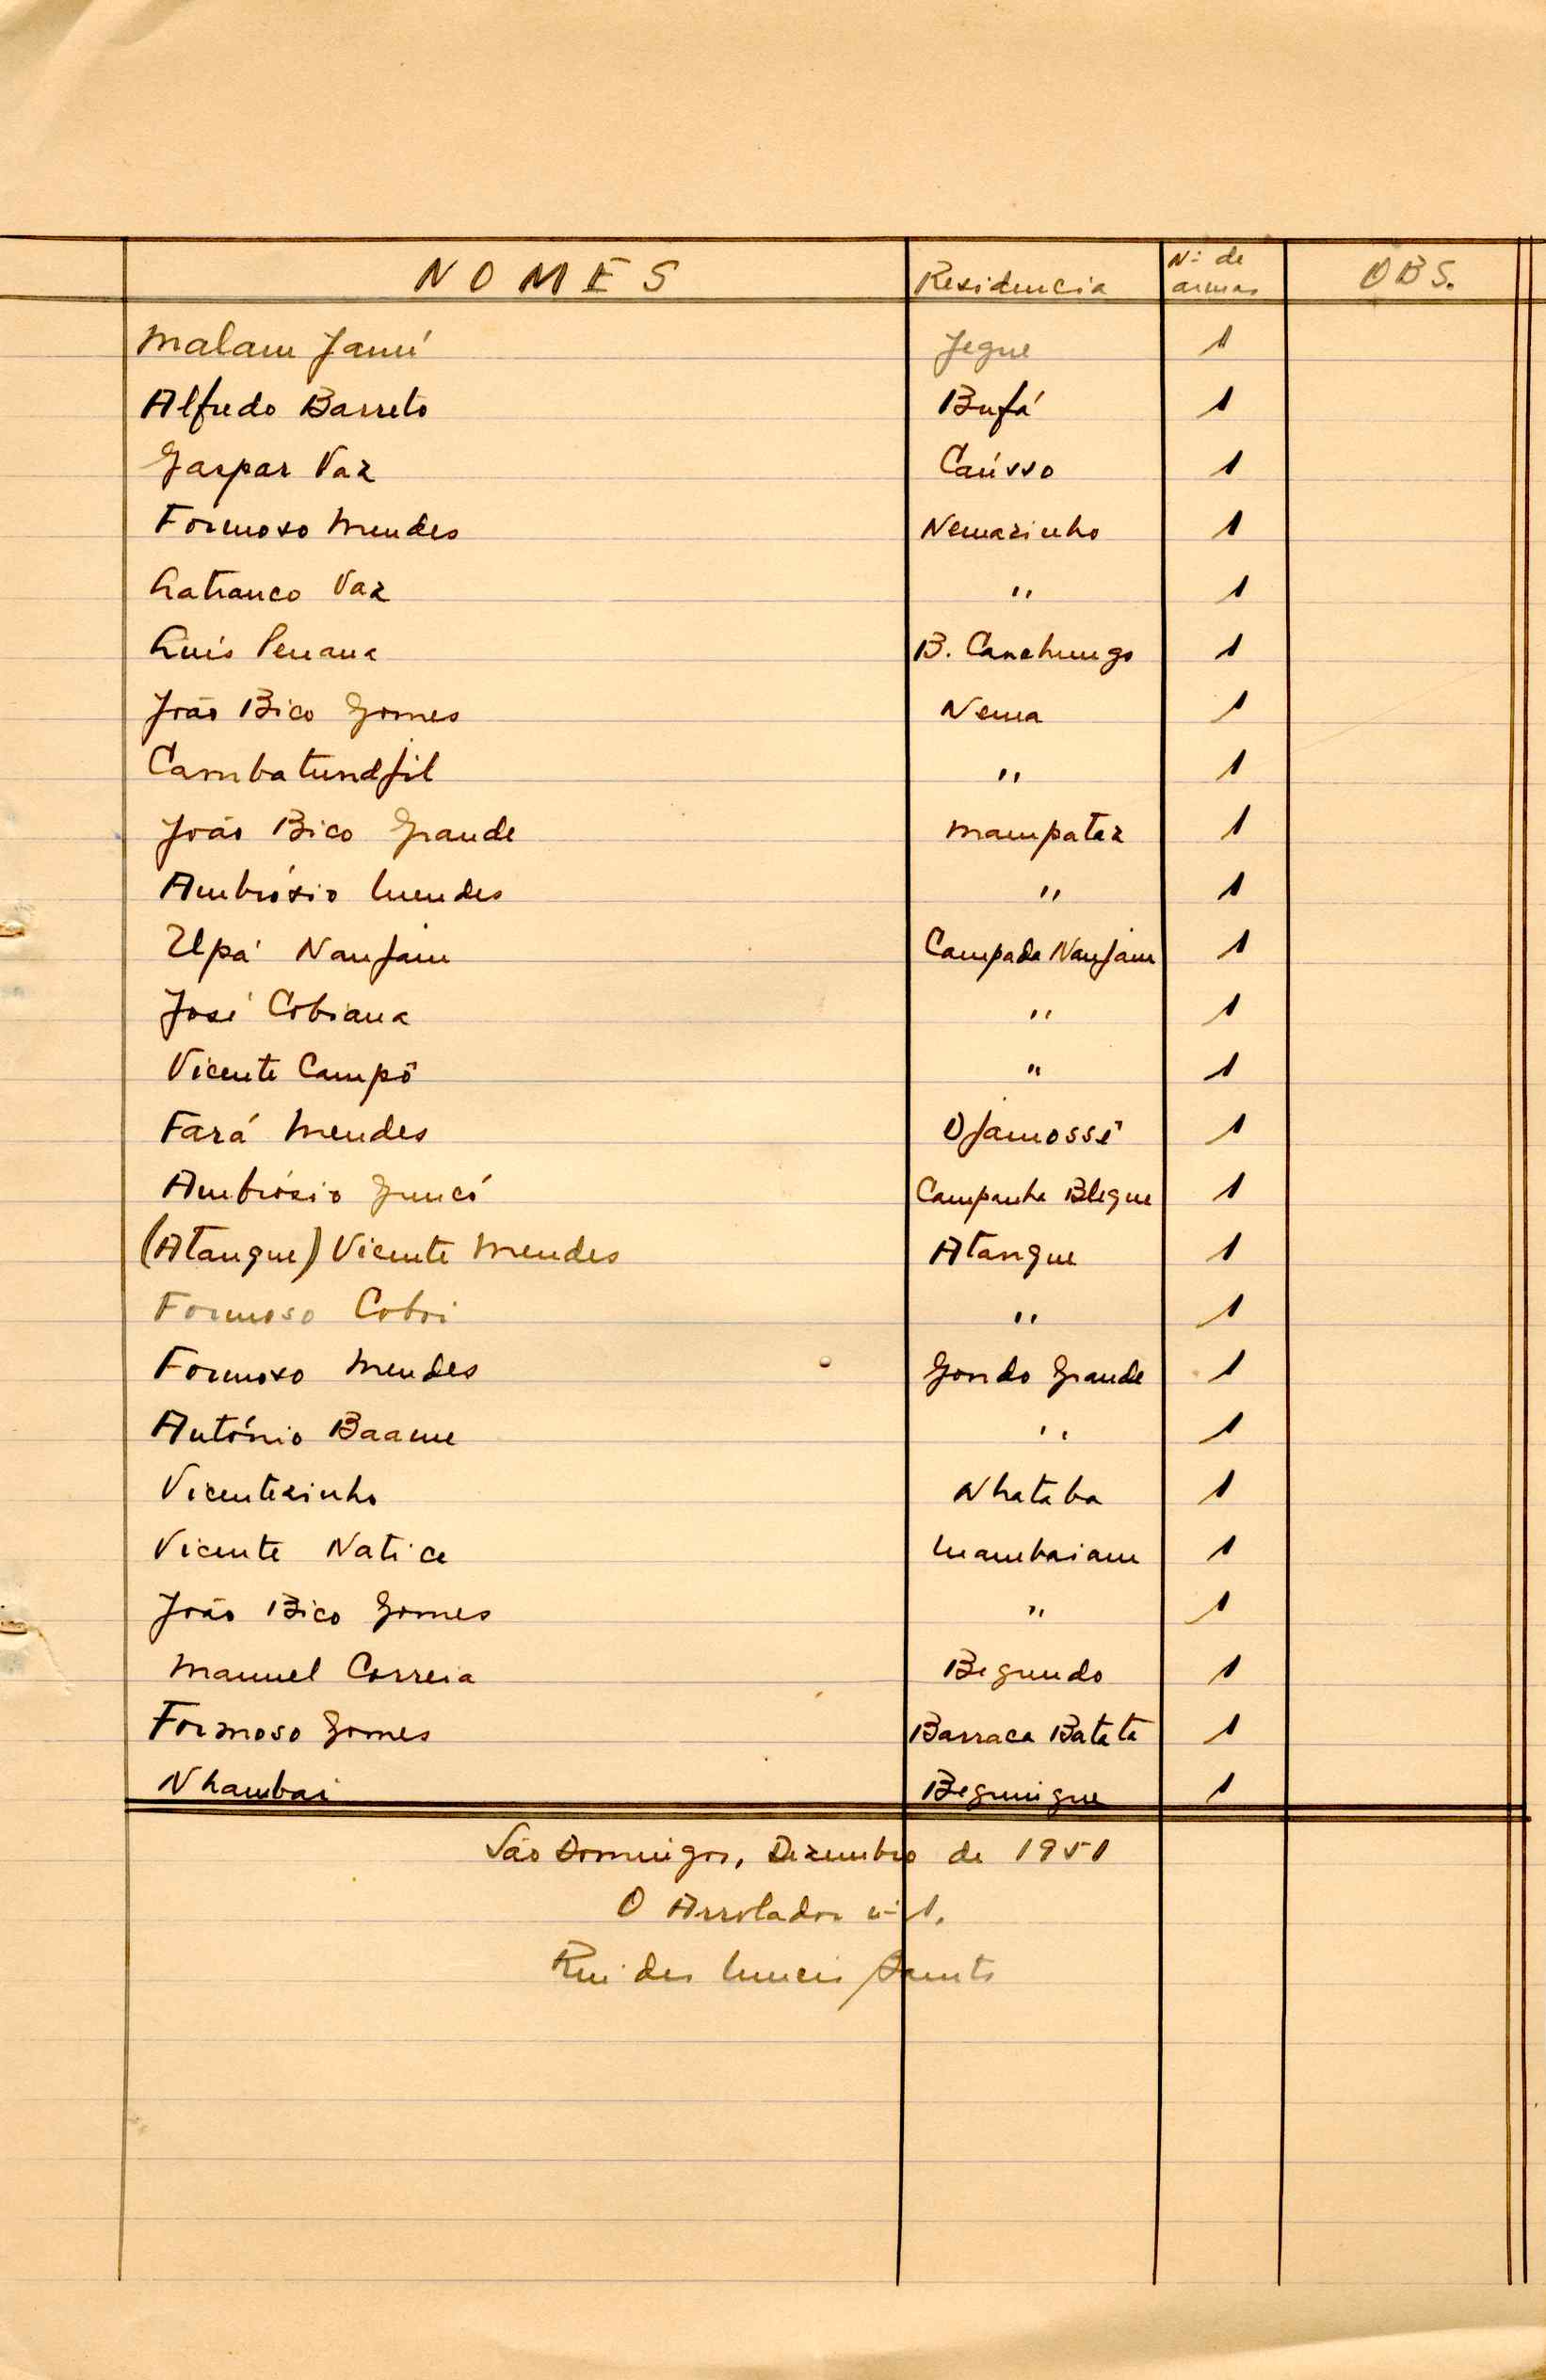 NOMES Residencia Nº de armas OBS.
Malam Janú Jegue 1
Alfredo Barreto Bufá 1
Gaspar Vaz Caússo 1
Formoso Mendes Nemazinho 1
Latranco Vaz " 1
Luís Penana B. Canchungo 1
João Bico Gomes Nema 1
Cambatundjil " 1
João Bico Grande Mampataz 1
Ambrósio Mendes " 1
Upá Nanjam Campada Nanjam 1
José Cobiana " 1
Vicente Campô " 1
Fará Mendes Djamossé 1
Ambrósio Campanha Blegue 1
(Atangue) Vicente Mendes Atangue 1
Formoso Coboi " 1
Formoso Mendes Gondo Grande 1
António Baame " 1
Vicentezinho Nhataba 1
Vicente Natice Mambaiam 1
João Bico Gomes " 1
Manuel Correia Begundo 1
Formoso Gomes Barraca Batata 1
Nhambai Begunigue 1
São Domingos, Dezembro de 1951
O Arrolador nº 1.
Rui